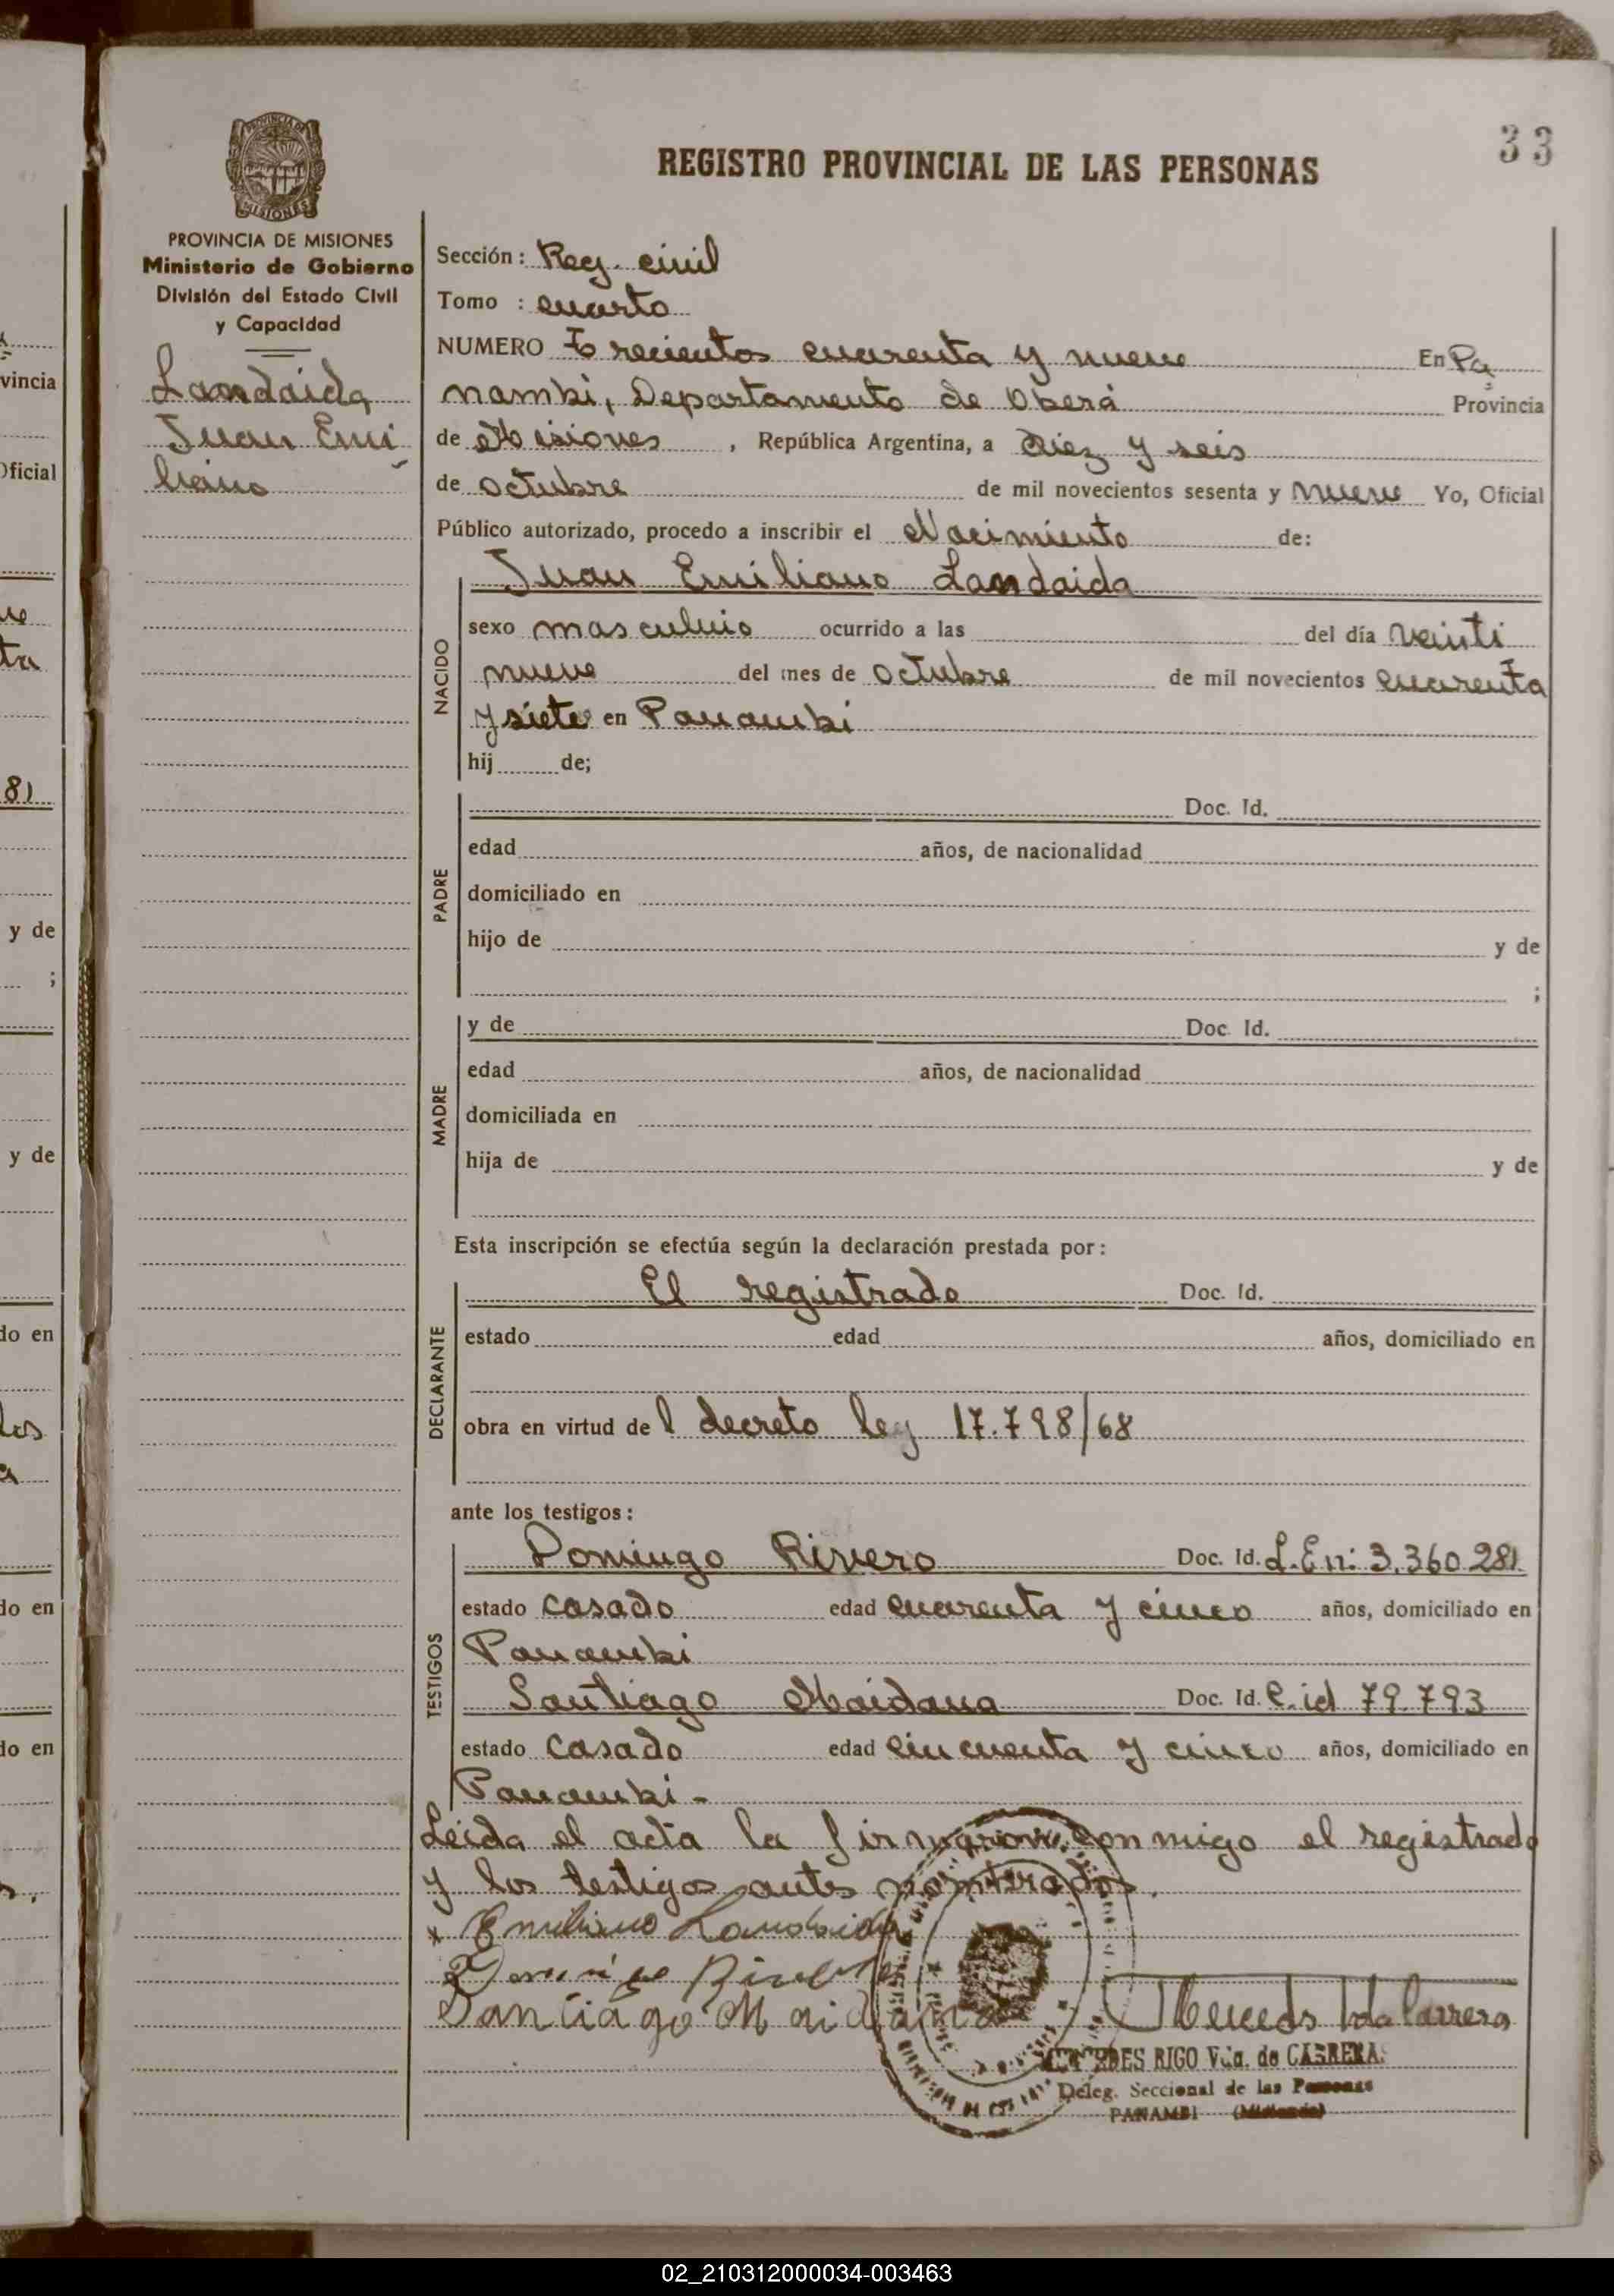 33
REGISTRO PROVINCIAL DE LAS PERSONAS
PROVINCIA DE
MISIONES
PROVINCIA DE MISIONES
Ministerio de Gobierno
División del Estado Civil
y Capacidad
Landaida
Juan Emi
liano
Sección: Reg. civil
Tomo : cuarto
NUMERO Trecientos cuarenta y nueve En Pa
nambi, Departamento de Oberá Provincia
de Misiones, República Argentina, a diez y seis
de octubre de mil novecientos sesenta y nueve Yo, Oficial
Público autorizado, procedo a inscribir el Nacimiento de:
Juan Emiliano Landaida
NACIDO
sexo masculino ocurrido a las del día veinti
nueve del mes de octubre de mil novecientos cuarenta
y siete en Panambi
hij de;
PADRE
Doc. Id.
edad años, de nacionalidad
domiciliado en
hijo de y de
;
MADRE
y de Doc. Id.
edad años, de nacionalidad
domiciliada en
hija de y de
Esta inscripción se efectúa según la declaración prestada por:
DECLARANTE
El registrado Doc. Id.
estado edad años, domiciliado en
obra en virtud del decreto ley 17.798/68
ante los testigos:
TESTIGOS
Domingo Rivero Doc. Id. L.E n: 3.360.281
estado casado edad cuarenta y cinco años, domiciliado en
Panambi
Santiago Maidana Doc. Id. C. id 79.793
estado casado edad cincuenta y cinco años, domiciliado en
Panambi -
Leida el acta la firmaron conmigo el registrado
y los testigos antes nombrados.
Emiliano Landaida
Domingo Rivero
Santiago Maidana
RIGO Vda. de CABRERA
Deleg. Seccional de las Personas
PANAMBI (Misiones)
vincia
Oficial
81
y de
;
y de
do en
do en
do en
02_210312000034-003463